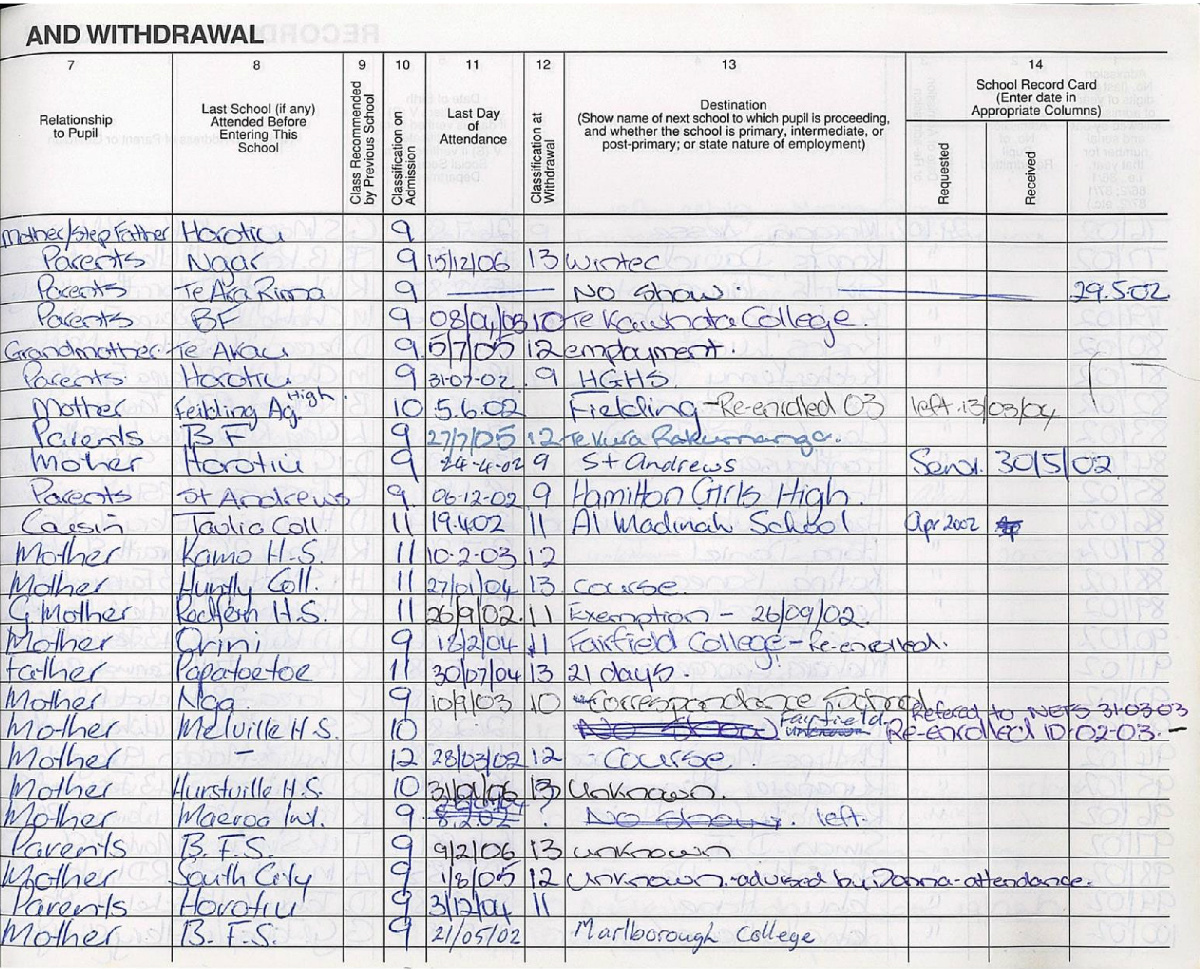 AND WITHDRAWAL
7 8 9 10 11 12 13 14
Relationship to Pupil
Last School (if any) Attended Before Entering This School
Class Recommended by Previous School
Classification on Admission
Last Day of Attendance
Classification at Withdrawal
Destination
(Show name of next school to which pupil is proceeding, and whether the school is primary, intermediate, or post-primary; or state nature of employment)
School Record Card
(Enter date in Appropriate Columns)
Requested
Received
Mother/Step Father Horotiu 9
Parents Ngar 9 15/12/06 13 Wintec
Parents 9 No Show. 29.5.02
Parents BF 9 10 College.
Grandmother Te Akau 9 5/7/05 12 employment.
Parents Horotiu 9 31-07-02 9 HGHS.
Mother Feilding Ag. High 10 5.6.02 Fielding - Re-enrolled 03 left 13/03/04
Parents B F 9 27/7/05 12 Te Kura
Mother Horotiu 9 24-4-02 9 St Andrews Send. 30/5/02
Parents St Andrews 9 06-12-02 9 Hamilton Girls High.
11 19.4.02 11 Al Madinah School Apr 2002
Mother Kamo H.S. 11 10-2-03 12
Mother Huntly Coll. 11 27/01/04 13 Course.
G Mother H.S. 11 26/9/02. 11 Exemption - 26/09/02.
Mother Orini 9 18/2/04 11 Fairfield College - Re-enrolled.
Father Papatoetoe 11 30/07/04 13 21 days.
Mother 9 10/9/03 10 Correspondance School Refered to NETS 31-03-03
Mother Melville H.S. 10 Fairfield. Re-enrolled 10-02-03. -
Mother - 12 28/03/02 12 Course.
Mother Hurstville H.S. 10 13 Unknown.
Mother Maeroa Int. 9 No Show. left.
Parents B. F.S. 9 9/2/06 13 unknown
Mother South City 9 1/8/05 12 Unknown - advised by Donna - attendance.
Parents Horotiu 9 3/12/04 11
Mother B. F.S. 9 21/05/02 Marlborough College